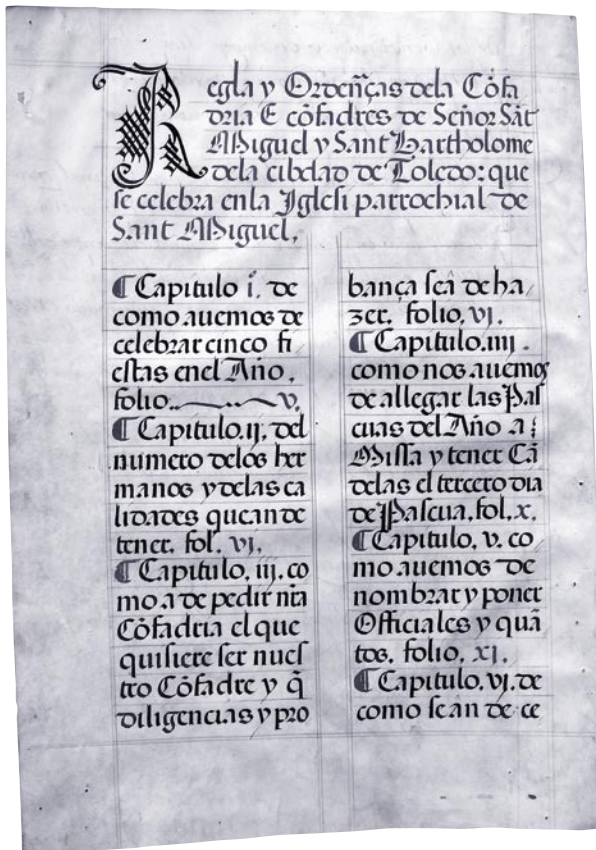 Regla y Ordenãças dela Cõfa
dria E cõfadres de Señor Sãt
Miguel y Sant Bartholome
dela cibdad de Toledo: que
se celebra enla Iglesi parrochial de
Sant Miguel,
¶ Capitulo i. de
como auemos de
celebrar cinco fi
estas enel Año,
folio. v.
¶ Capitulo. ij. del
numero delos her
manos y delas ca
lidades que an de
tener. fol. vj.
¶ Capitulo. iij. co
mo a de pedir nr̃a
Cõfadria el que
quisiere ser nues
tro Cõfadre y q̃
diligencias y pro
bança seã de ha
zer. folio. vj.
¶ Capitulo. iiij.
como nos auemos
de allegar las Pas
cuas del Año a
Missa y tener Cã
delas el tercero dia
de Pascua. fol. x.
¶ Capitulo. v. co
mo auemos de
nombrar y poner
Officiales y quã
tos. folio. xj.
¶ Capitulo. vj. de
como sean de ce